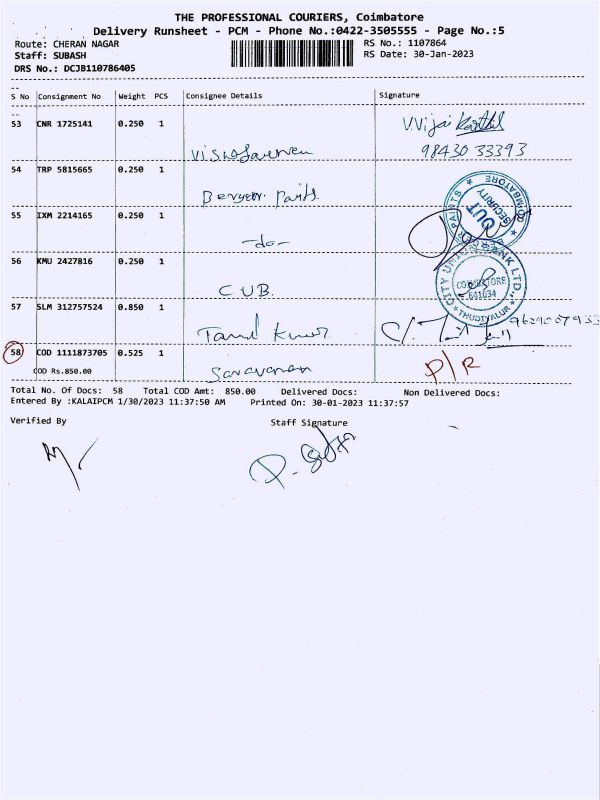 THE PROFESSIONAL COURIERS, Coimbatore
Delivery Runsheet - PCM - Phone No.:0422-3505555 - Page No.:5
Route: CHERAN NAGAR
RS No.: 1107864
Staff: SUBASH
RS Date: 30-Jan-2023
DRS No.: DCJB110786405
S No Consignment No Weight PCS Consignee Details Signature
53 CNR 1725141 0.250 1
V.Vijai Karthik
98430 33393
54 TRP 5815665 0.250 1
Paints
COIMBATORE
SECURITY
OUT
PAINTS
55 IXM 2214165 0.250 1
-do-
56 KMU 2427816 0.250 1
C.U.B.
CITY UNION BANK LTD.,
COIMBATORE
641034
THUDIYALUR
57 SLM 312757524 0.850 1
Tamil Kumar
58 COD 1111873705 0.525 1
COD Rs.850.00
Saravanan
P/R
Total No. Of Docs: 58 Total COD Amt: 850.00 Delivered Docs: Non Delivered Docs:
Entered By :KALAIPCM 1/30/2023 11:37:50 AM Printed On: 30-01-2023 11:37:57
Verified By Staff Signature